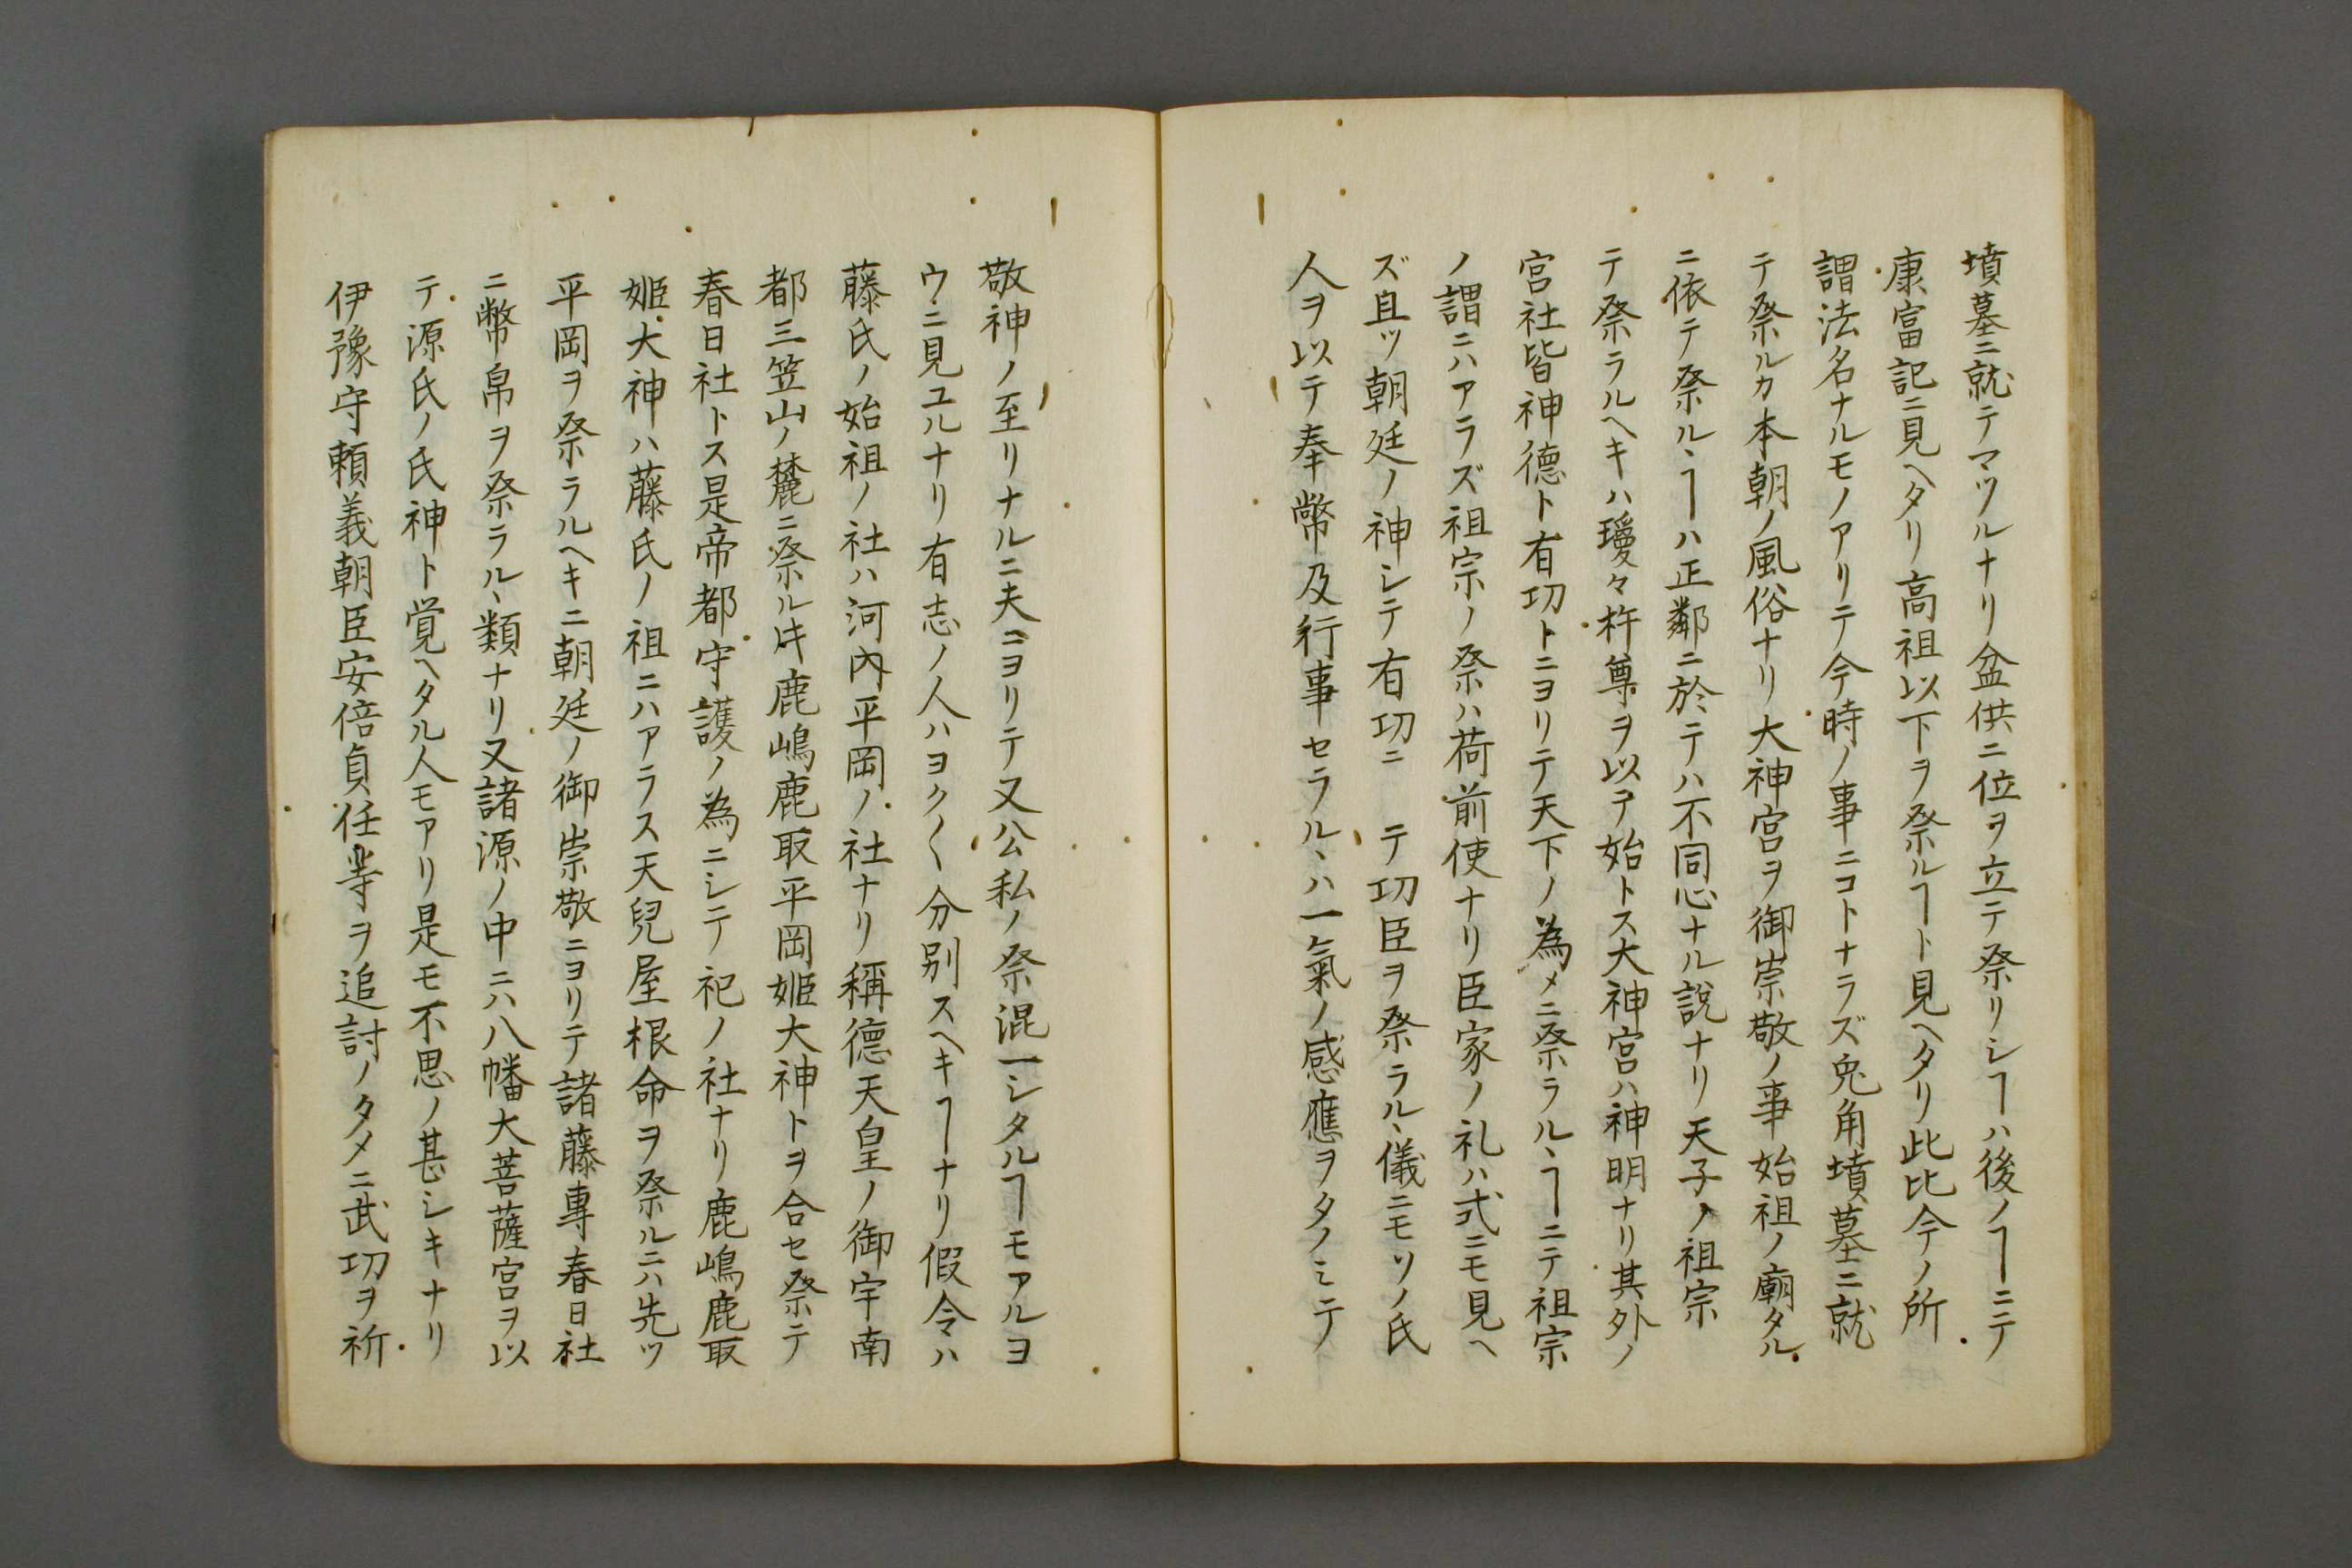 墳墓ニ就テマツルナリ盆供ニ位ヲ立テ祭リシヿハ後ノヿニテ
康富記ニ見ヘタリ高祖以下ヲ祭ルヿト見ヘタリ此比今ノ所
謂法名ナルモノアリテ今時ノ事ニコトナラズ兎角墳墓ニ就
テ祭ルカ本朝ノ風俗ナリ大神宮ヲ御崇敬ノ事始祖ノ廟タル
ニ依テ祭ルヽヿハ正鄰ニ於テハ不同心ナル説ナリ天子ノ祖宗
テ祭ラルヘキハ瓊々杵尊ヲ以テ始トス大神宮ハ神明ナリ其外ノ
宮社皆神徳ト有功トニヨリテ天下ノ為メニ祭ラルヽヿニテ祖宗
ノ謂ニハアラズ祖宗ノ祭ハ荷前使ナリ臣家ノ礼ハ式ニモ見ヘ
ズ且ツ朝廷ノ神シテ有功ニ　テ功臣ヲ祭ラルヽ儀ニモソノ氏
人ヲ以テ奉幣及行事セラルヽハ一氣ノ感應ヲタノミテ
敬神ノ至リナルニ夫ニヨリテ又公私ノ祭混一シタルヿモアルヨ
ウニ見ユルナリ有志ノ人ハヨク〱分別スヘキヿナリ假令ハ
藤氏ノ始祖ノ社ハ河内平岡ノ社ナリ稱德天皇ノ御宇南
都三笠山ノ麓ニ祭ル𪜈鹿嶋鹿取平岡姬大神トヲ合セ祭テ
春日社トス是帝都守護ノ為ニシテ祀ノ社ナリ鹿嶋鹿取
姬大神ハ藤氏ノ祖ニハアラス天兒屋根命ヲ祭ルニハ先ツ
平岡ヲ祭ラルヘキニ朝廷ノ御崇敬ニヨリテ諸藤專春日社
ニ幣帛ヲ祭ラルヽ類ナリ又諸源ノ中ニハ八幡大菩薩宮ヲ以
テ源氏ノ氏神ト覚ヘタル人モアリ是モ不思ノ甚シキナリ
伊豫守頼義朝臣安倍貞任等ヲ追討ノタメニ武功ヲ祈